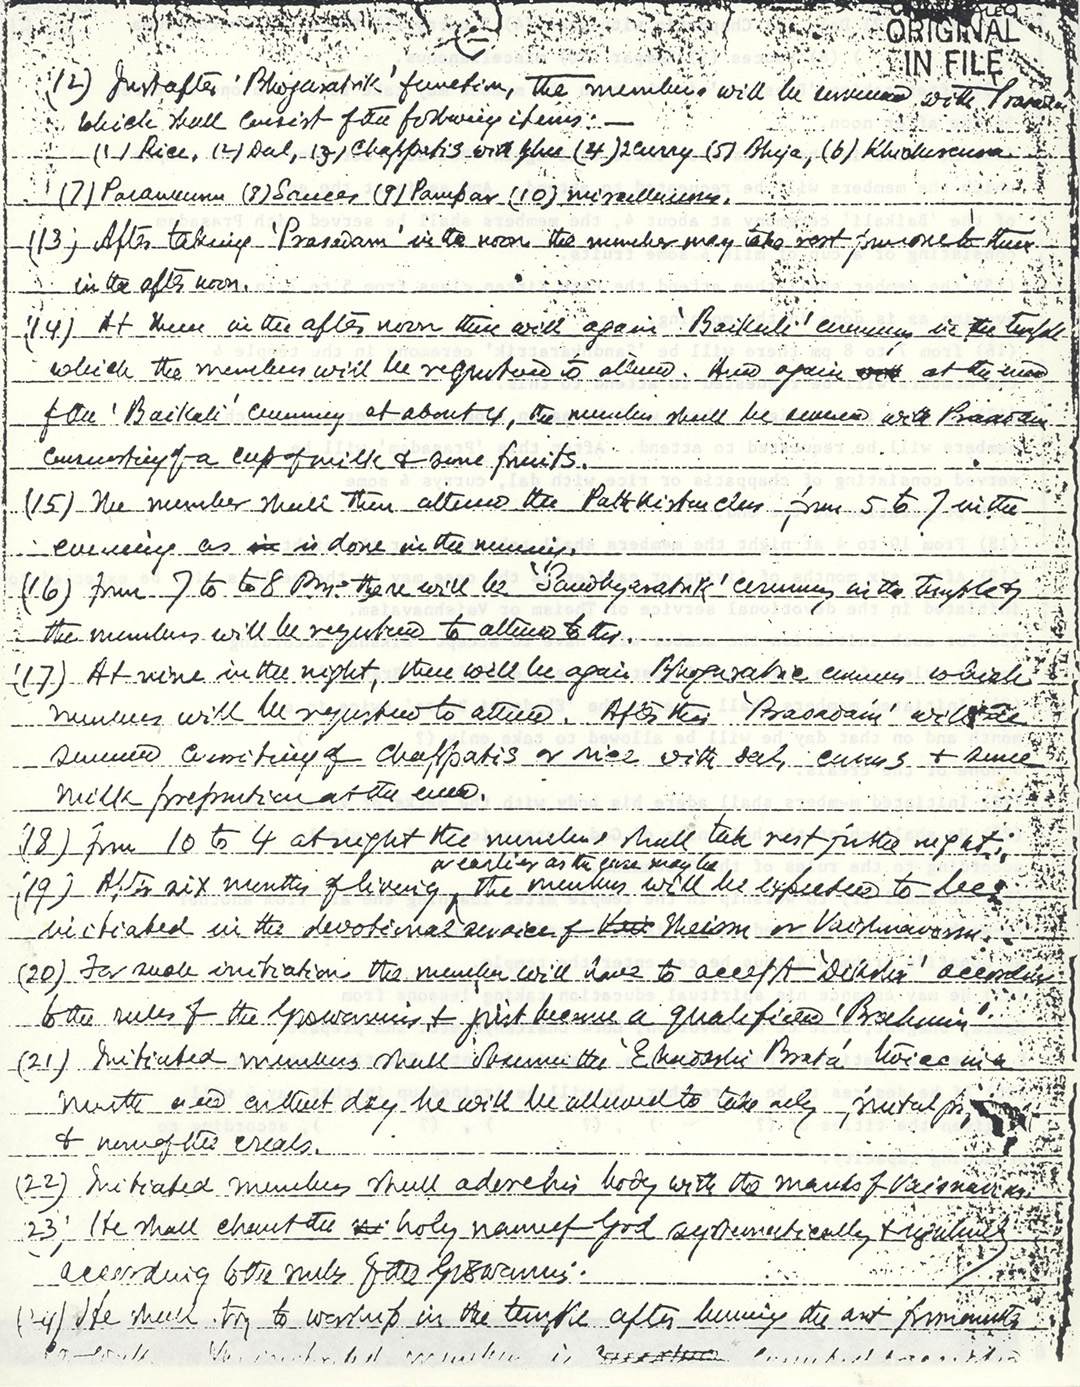 ORIGINAL
IN FILE
(12) Just after 'Bhogaratrik' function, the members will be served with Prasadam
which shall consist of the following items: —
(1) Rice, (2) Dal, (3) Chappatis with ghee (4) 2 curry (5) Bhija, (6) Khichuranna
(7) Paramanna (8) Sauces (9) Pampar (10) miscellaneous.
(13) After taking 'Prasadam' in the noon the member may take rest from one to three
in the after noon.
(14) At three in the after noon there will again 'Baikali' ceremony in the temple
which the members will be requested to attend. And again at the end
of the 'Baikali' ceremony at about 4, the members shall be served with Prasadam
consisting of a cup of milk & some fruits.
(15) The member shall then attend the class from 5 to 7 in the
evening as is done in the morning.
(16) From 7 to to 8 Pm there will be 'Sandhyaratrik' ceremony in the temple &
the members will be requested to attend to this.
(17) At nine in the night, there will be again Bhogaratric ceremony which
members will be requested to attend. After this 'Prasadam' will be
served consisting of chappatis or rice with dal, currys & some
milk preparation at the end.
(18) From 10 to 4 at night the members shall take rest for the night.
or earlier as the case may be
(19) After six months of living, the members will be expected to be
initiated in the devotional service of Theism or Vaishnavism.
(20) For such initiation the member will have to accept 'Diksha' according
to the rules of the Goswamis & first become a qualified 'Brahmin'.
(21) Initiated members shall observe the 'Ekadashi Brata' twice in a
month and on that day he will be allowed to take only
& none of the creals.
(22) Initiated members shall adore his body with the marks of Vaisnavism
23) He shall chant the holy name of God systematically & regularly
according to the rules of the Goswamis.
(24) He shall try to worship in the temple after learning the art from